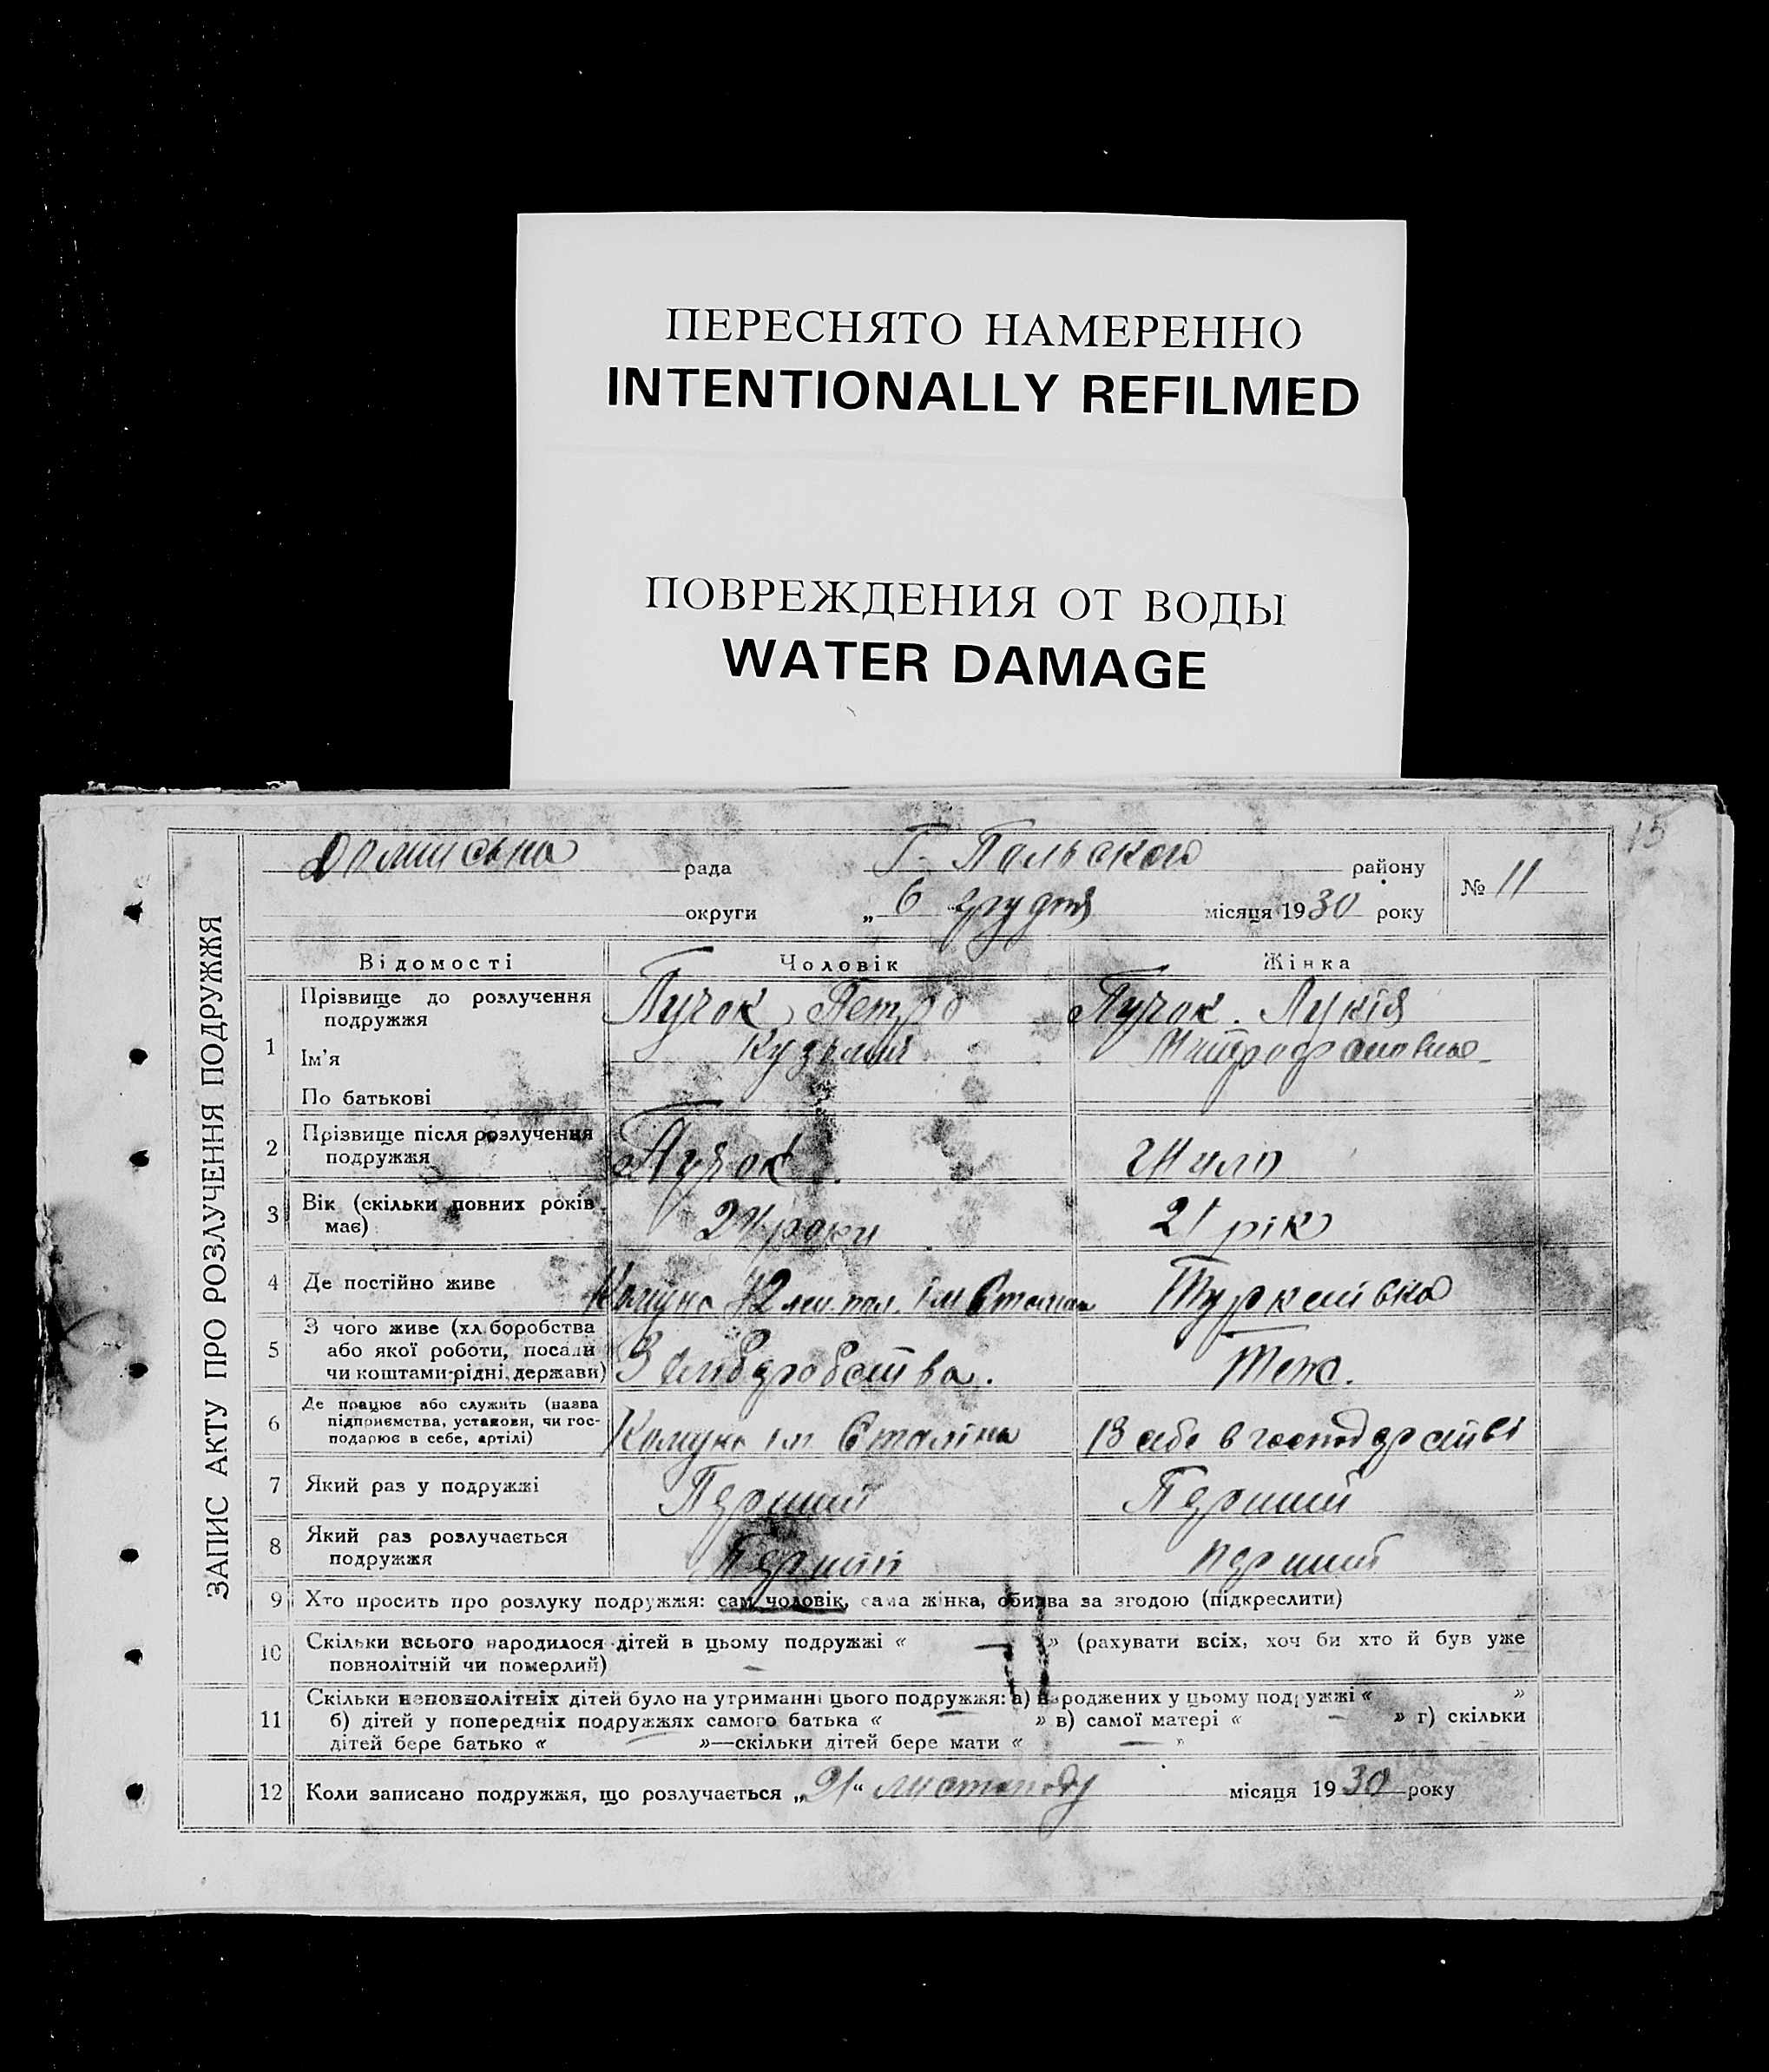 ПЕРЕСНЯТО НАМЕРЕННО
INTENTIONALLY REFILMED
ПОВРЕЖДЕНИЯ ОТ ВОДЫ
WATER DAMAGE
15
ЗАПИС АКТУ ПРО РОЗЛУЧЕННЯ ПОДРУЖЖЯ
рада Г. Польського району
№ 11
округи „ 6 грудня місяця 1930 року
Відомості Чоловік Жінка
1 Прізвище до розлучення подружжя Пучок Петро Пучок Лукія
Ім'я Кузьмич Митрофановна
По батькові
2 Прізвище після розлучення подружжя Пучок.
3 Вік (скільки повних років має) 24 роки 21 рік
4 Де постійно живе Комуна ім Сталіна
5 З чого живе (хліборобства або якої роботи, посади чи коштами рідні, держави) Теж.
6 Де працює або служить (назва підприємства, установи, чи господарює в себе, артілі) Комуна ім Сталіна В себе в господарстві
7 Який раз у подружжі Перший Перший
8 Який раз розлучається подружжя Перший перший
9 Хто просить про розлуку подружжя: сам чоловік, сама жінка, обидва за згодою (підкреслити)
10 Скільки всього народилося дітей в цьому подружжі « — » (рахувати всіх, хоч би хто й був уже
повнолітній чи померлий)
11 Скільки неповнолітніх дітей було на утриманні цього подружжя: а) народжених у цьому подружжі « »
б) дітей у попередніх подружжях самого батька « » в) самої матері « — » г) скільки
дітей бере батько « — »—скільки дітей бере мати « — »
12 Коли записано подружжя, що розлучається „21“ листопаду місяця 1930 року